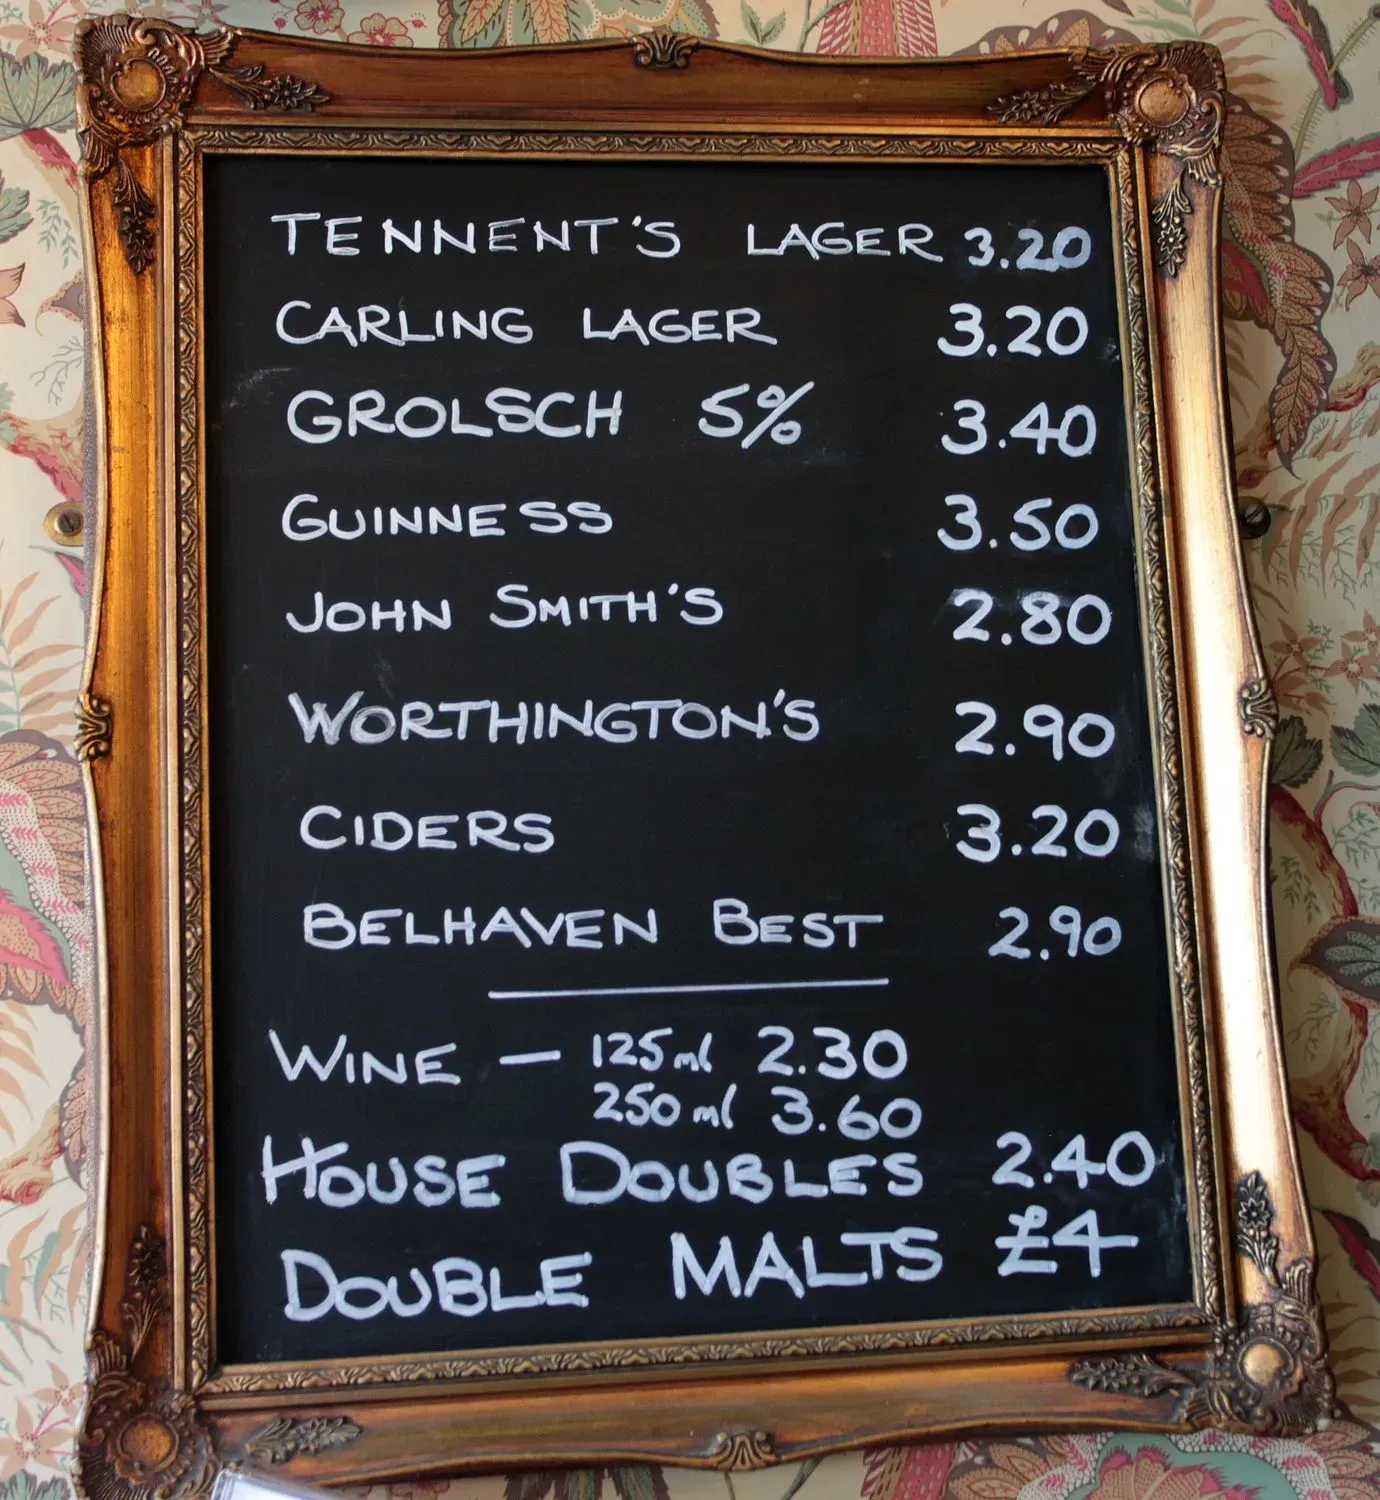 TENNENT'S LAGER 3.20
CARLING LAGER 3.20
GROLSCH 5% 3.40
GUINNESS 3.50
JOHN SMITH'S 2.80
WORTHINGTON'S 2.90
CIDERS 3.20
BELHAVEN BEST 2.90
WINE — 125ml 2.30
250ml 3.60
HOUSE DOUBLES 2.40
DOUBLE MALTS £4